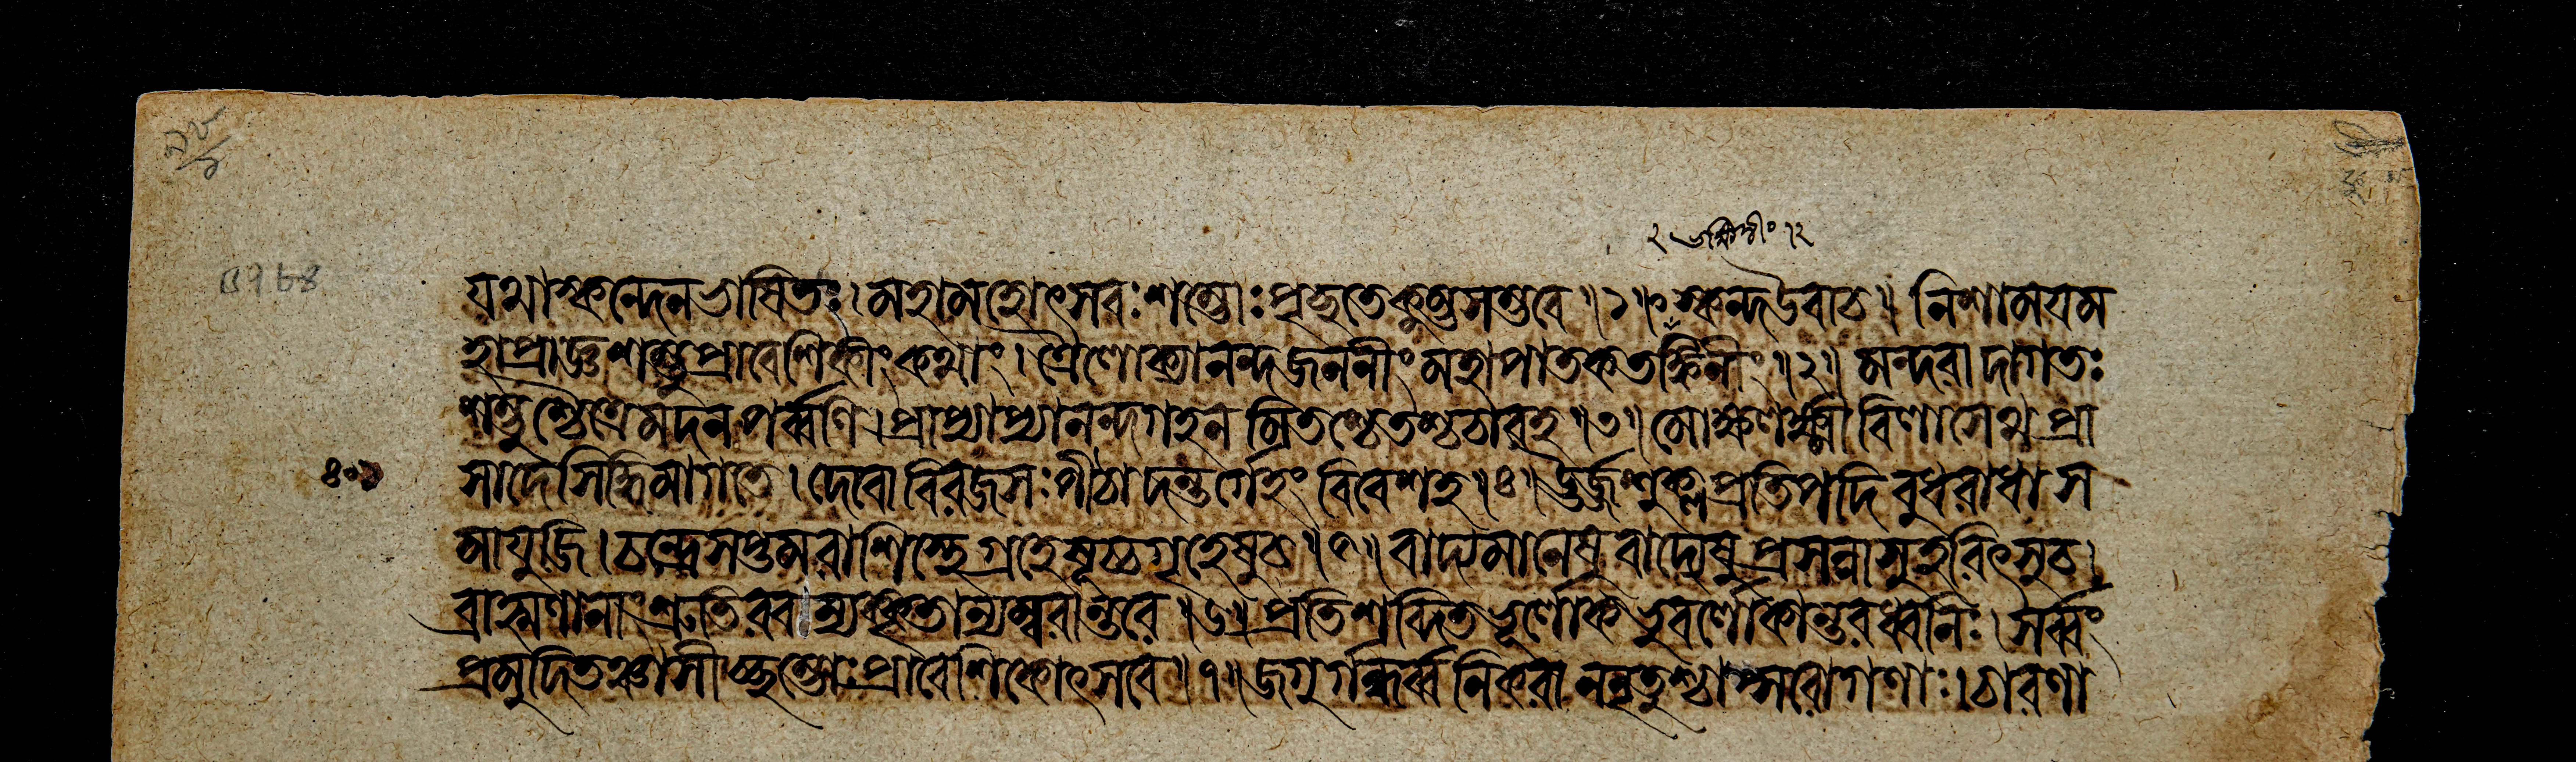 ২ তর্ক্কিনীং ।২
যথাস্কন্দেনভাষিতঃ। মহামহোৎসবঃ শম্ভোঃ পৃচ্ছতেকুম্ভসম্ভবে ॥১॥ স্কন্দউবাচ॥ নিশাময়ম
হাপ্রাজ্ঞশম্ভুপ্রাবেশিকীংকথাং। ত্রৈলোক্যানন্দজননীং মহাপাতকতর্জ্জিনীং ॥২॥ মন্দরাদাগতঃ
শম্ভুশ্চৈত্রেমদনপর্ব্বণি। প্রাপ্যাপ্যানন্দগহনমিতশ্চেতশ্চচারহ ॥৩॥ মোক্ষলক্ষ্মীবিলাসেথপ্রা
৪০১ সাদেসিদ্ধিমাগতে। দেবোবিরজসঃপীঠাদন্তর্গেহং বিবেশহ ॥৪॥ ঊর্জশুক্লপ্রতিপদি বুধরাধাস
মাযুজি। চন্দ্রেসপ্তমরাশিস্থেগ্রহেষূচ্চগৃহেষুচ ॥৫॥ বাদ্যমানেষুবাদ্যেষু প্রসন্নাসুহরিৎসুচ।
ব্রাহ্মণানাংশ্রুতিরবান্যক্কৃতান্যস্বরান্তরে ॥৬॥ প্রতিশব্দিতভূর্লোকভুবর্লোকান্তরধ্বনিঃ। সর্ব্বং
প্রমুদিতঞ্চাসীচ্ছম্ভোঃপ্রাবেশিকোৎসবে ॥৭॥ জগুর্গন্ধর্ব্বনিকরাননৃতুশ্চাপ্সরোগণাঃ। চারণা